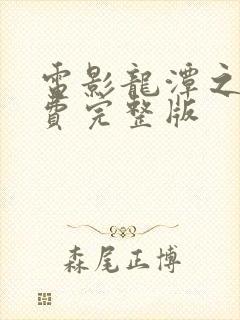 雷影龍潭之
費完整版
森尾正博